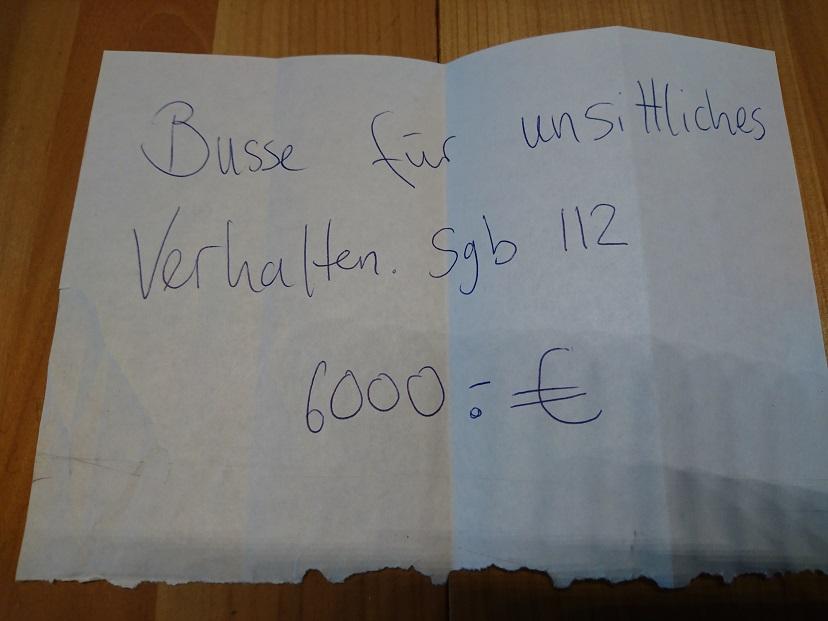 Busse für unsittliches
Verhalten. Sgb 112
6000:- €